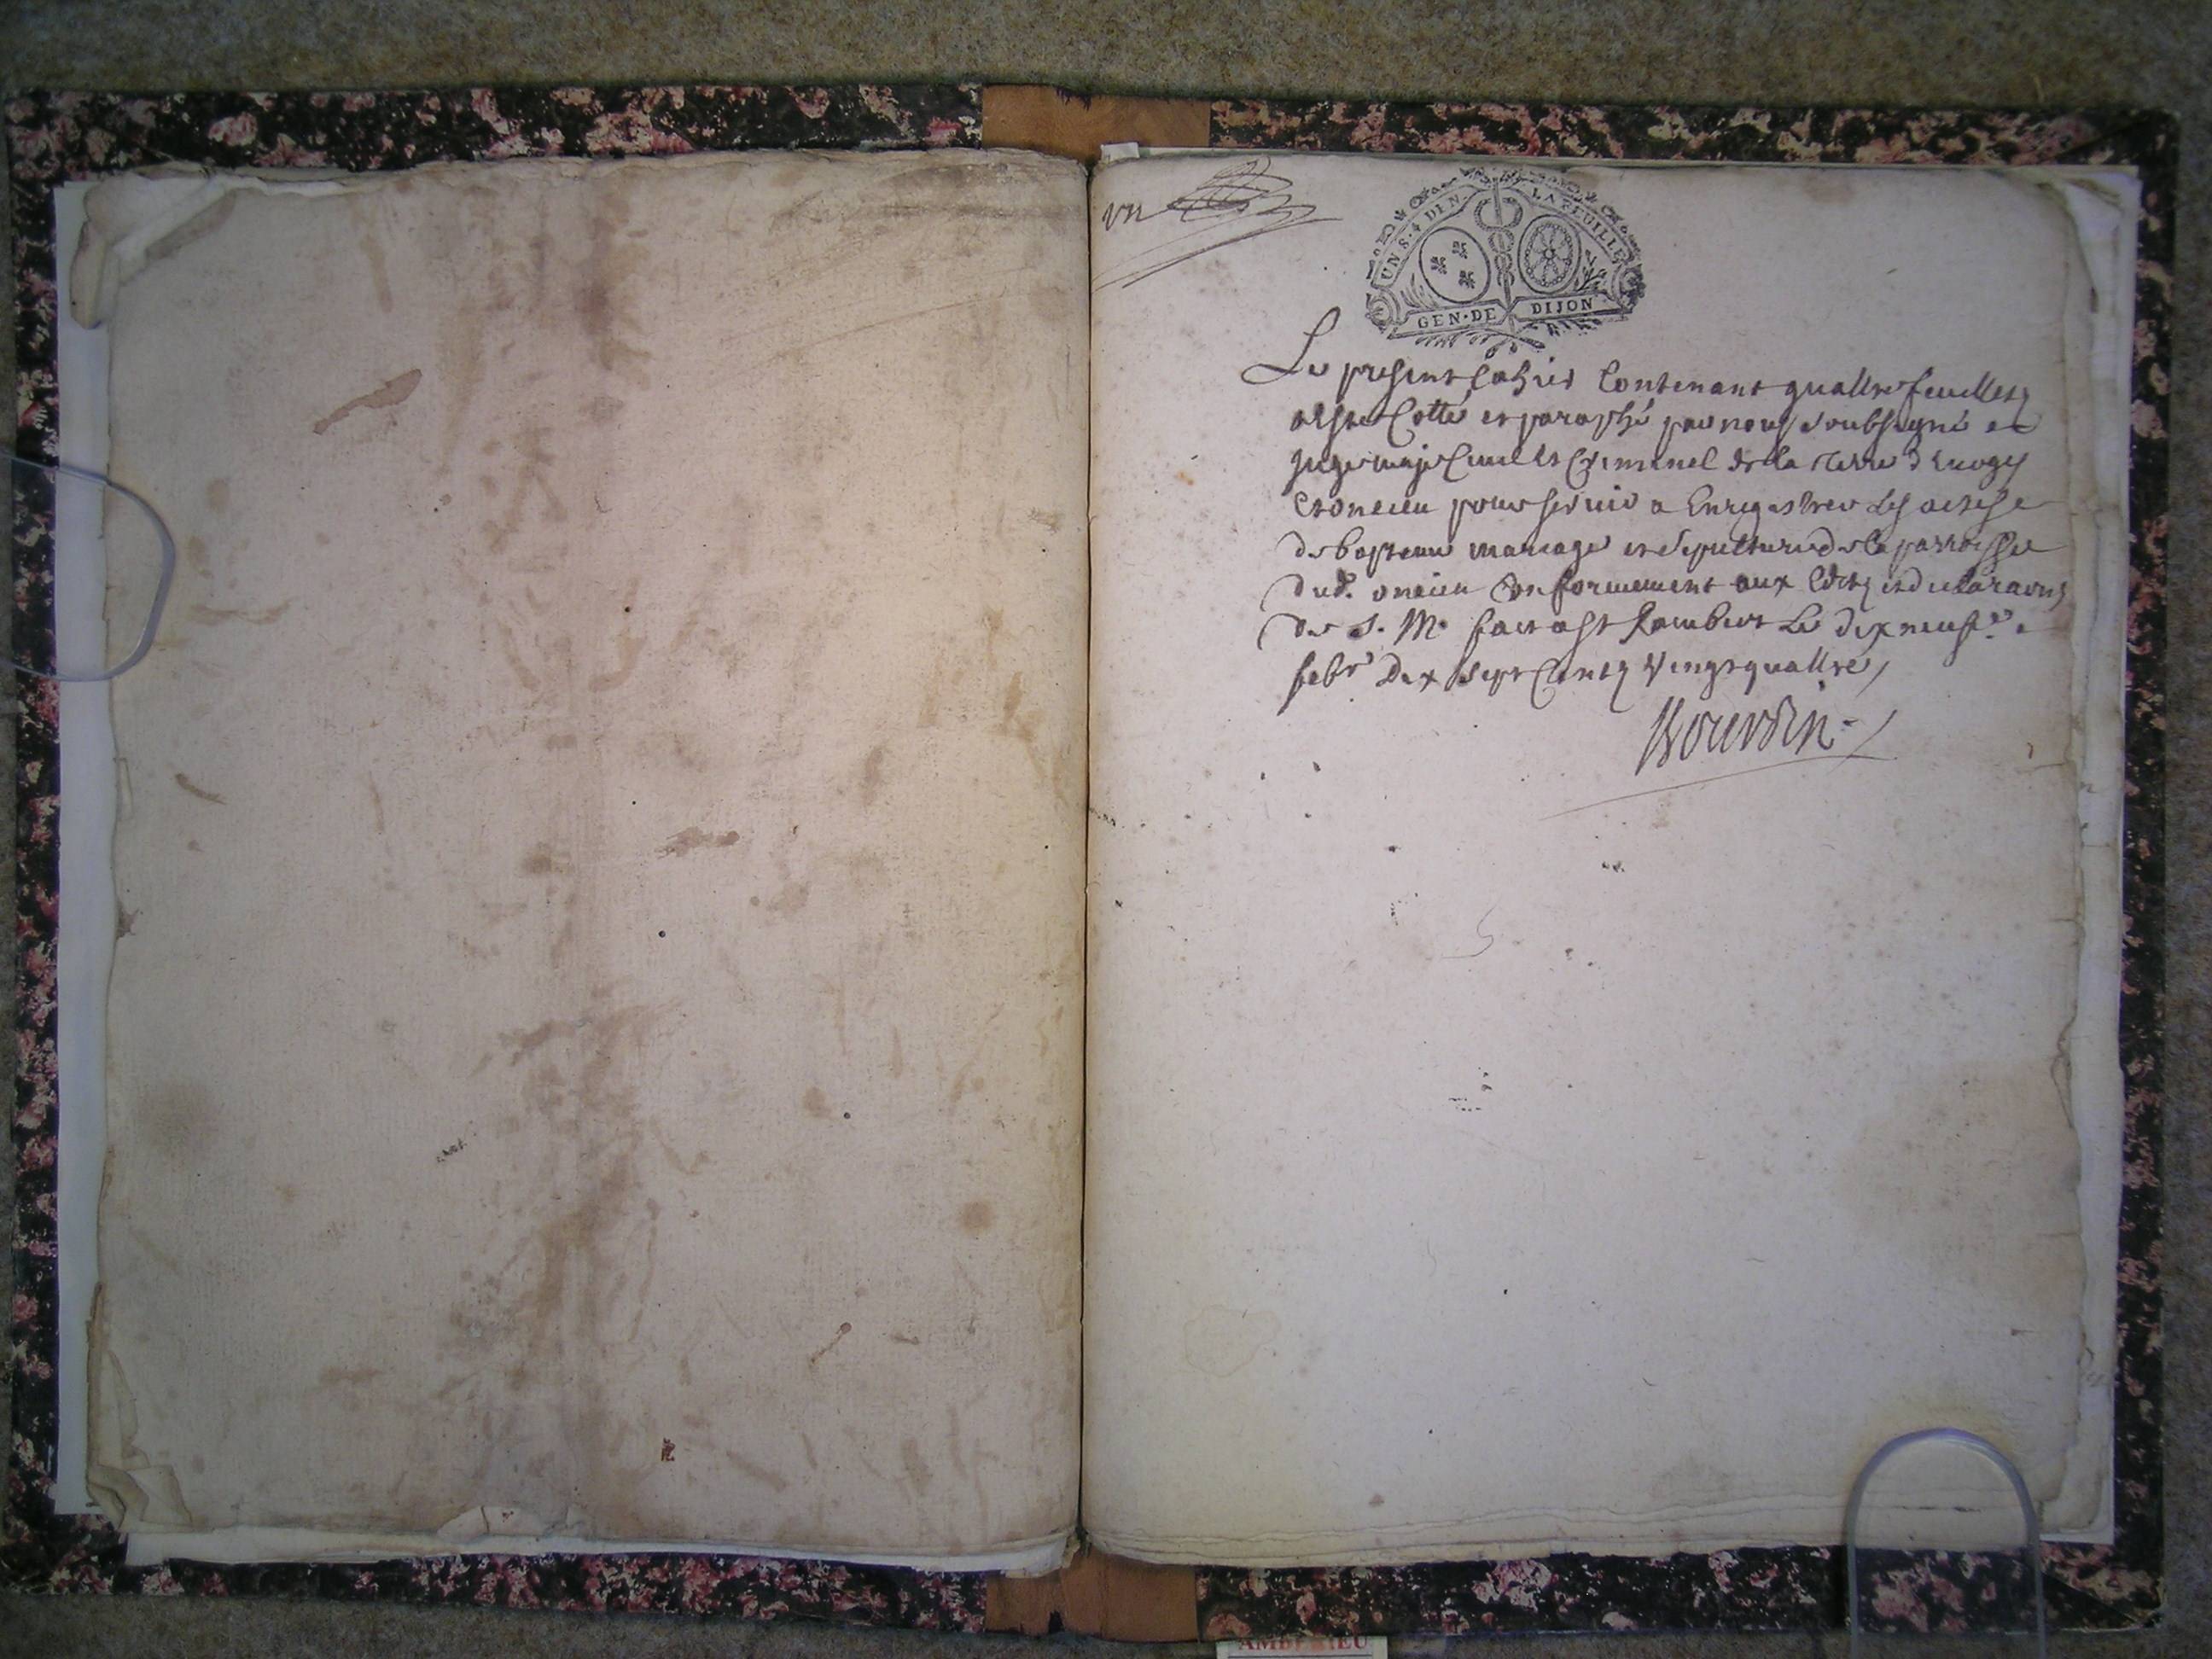 un
UN S. 4 DEN. LA FEUILLE
GEN. DE DIJON
Le present Cahier Contenant quattre feuillets
a esté Cotté et paraphé par nous soubsigné
juge maje Civil et Criminel de la terre d'Evoges
et oncieu pour servir a Enregistrer Les actes
de bapteme mariage et sepulture de la parroisse
dud. oncieu Conformement aux Edits et declaraons
de S. M. fait a St Rambert Le dix neuf
febr Dix sept Cents Vingt quattre
Bourdin
AMBERIEU